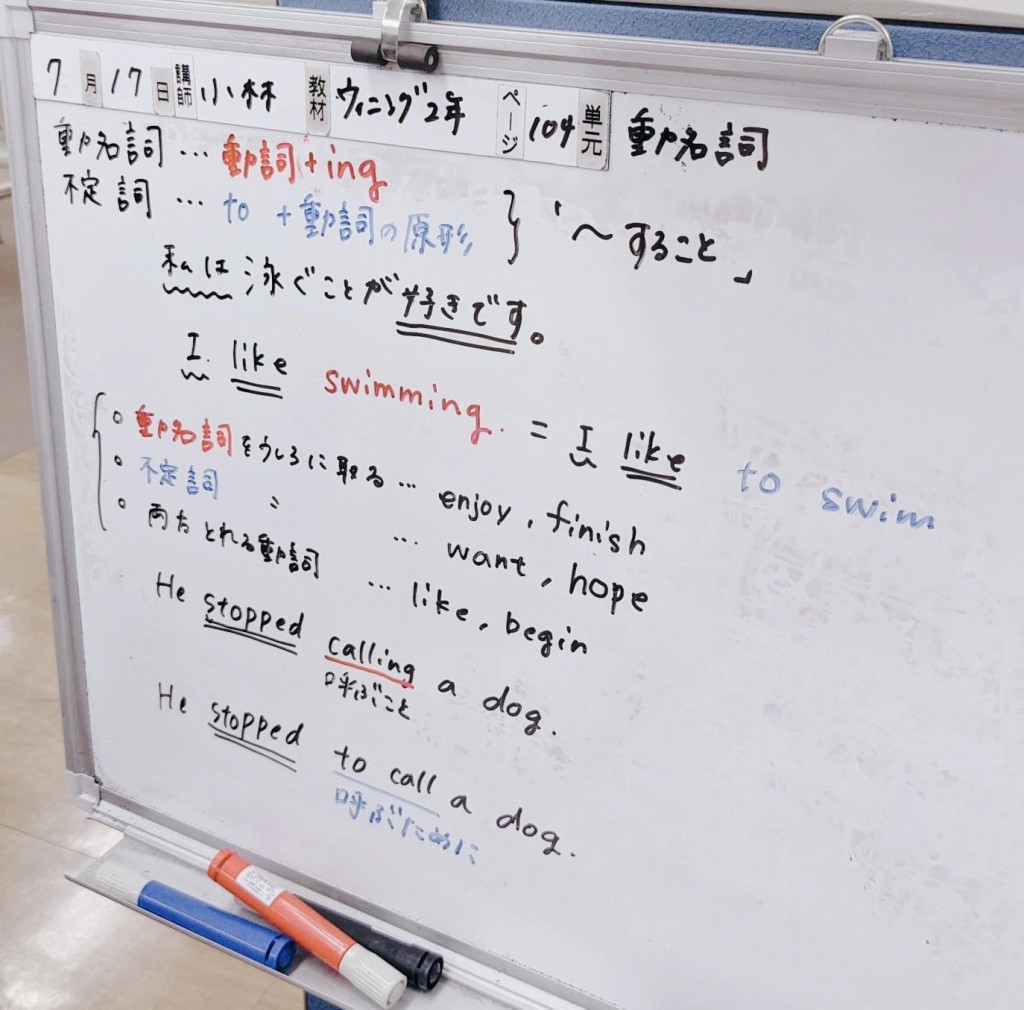 7月17日 講師 小林 教材 ウィニング2年 ページ 104 単元 動名詞
動名詞 … 動詞+ing
不定詞 … to +動詞の原形 } 「~すること」
私は泳ぐことが好きです。
I like swimming. = I like to swim
○ 動名詞をうしろに取る … enjoy, finish
○ 不定詞 〃 … want, hope
○ 両方とれる動詞 … like, begin
He stopped calling a dog.
呼ぶこと
He stopped to call a dog.
呼ぶために